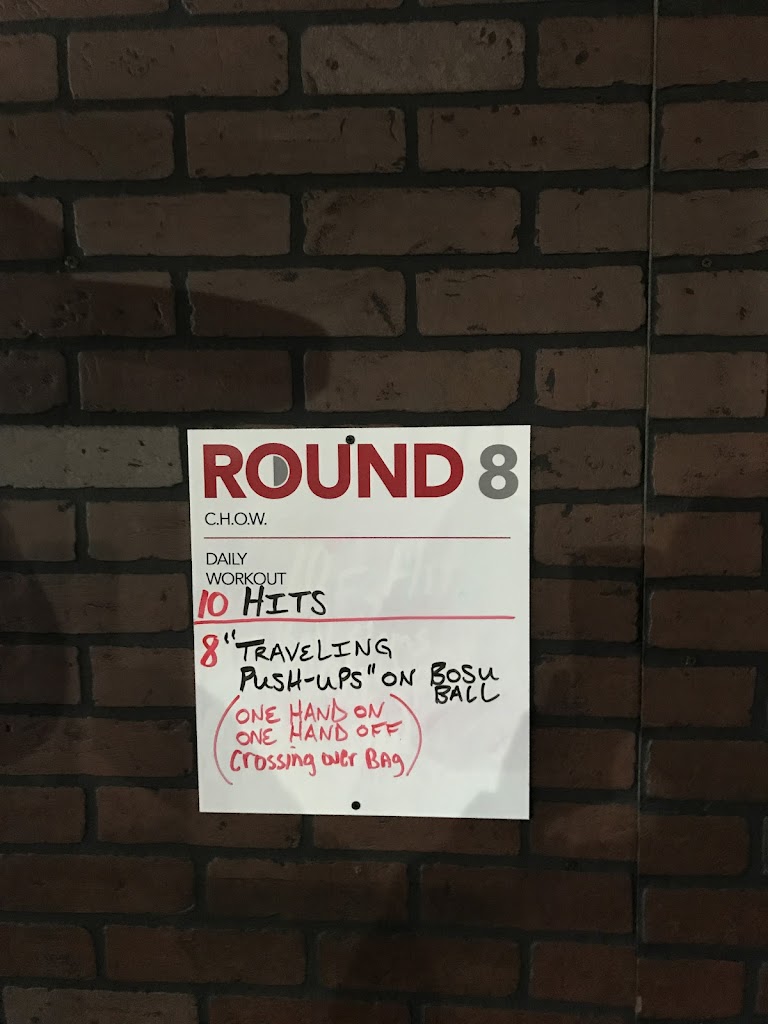 ROUND 8
C.H.O.W.
DAILY
WORKOUT
10 HITS
8 "TRAVELING
PUSH-UPS" ON BOSU
BALL
(ONE HAND ON
ONE HAND OFF
Crossing over BAg)